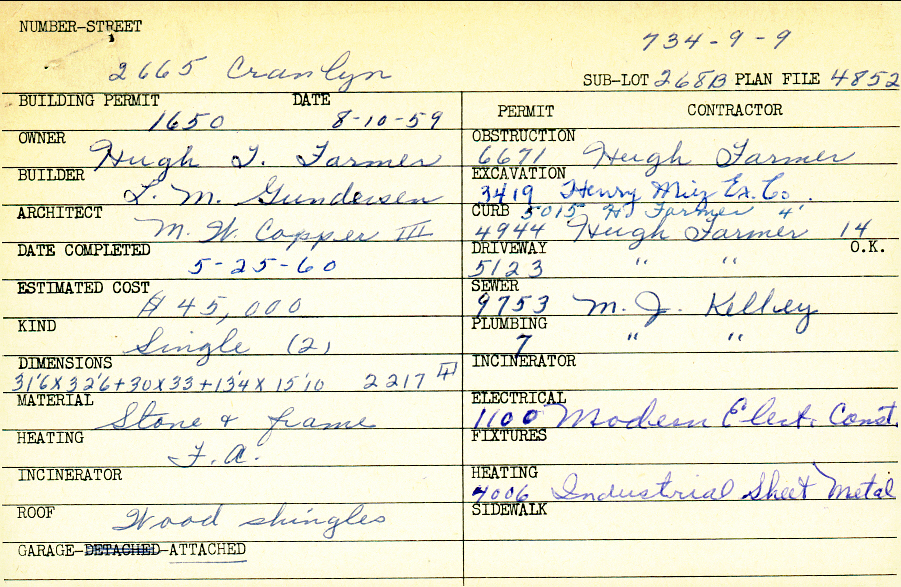 NUMBER-STREET
734-9-9
2665 Cranlyn
SUB-LOT 268B PLAN FILE 4852
BUILDING PERMIT DATE
1650 8-10-59
OWNER Hugh T. Farmer
BUILDER L. M. Gundersen
ARCHITECT M. W. Copper III
DATE COMPLETED
5-25-60
ESTIMATED COST
$45,000
KIND Single (2)
DIMENSIONS
31'6 X 32'6 + 30 X 33 + 13'4 X 15'10 2217
MATERIAL Stone & frame
HEATING F.A.
INCINERATOR
ROOF Wood shingles
GARAGE-DETACHED-ATTACHED
PERMIT CONTRACTOR
OBSTRUCTION
6671 Hugh Farmer
EXCAVATION
3419 Henry Miz Ex. Co.
CURB 5015 H. Farmer 4'
4944 Hugh Farmer 14
DRIVEWAY O.K.
5123 " "
SEWER
9753 M. J. Kelley
PLUMBING
7 " "
INCINERATOR
ELECTRICAL
1100 Modern Elect. Const.
FIXTURES
HEATING
4006 Industrial Sheet Metal
SIDEWALK